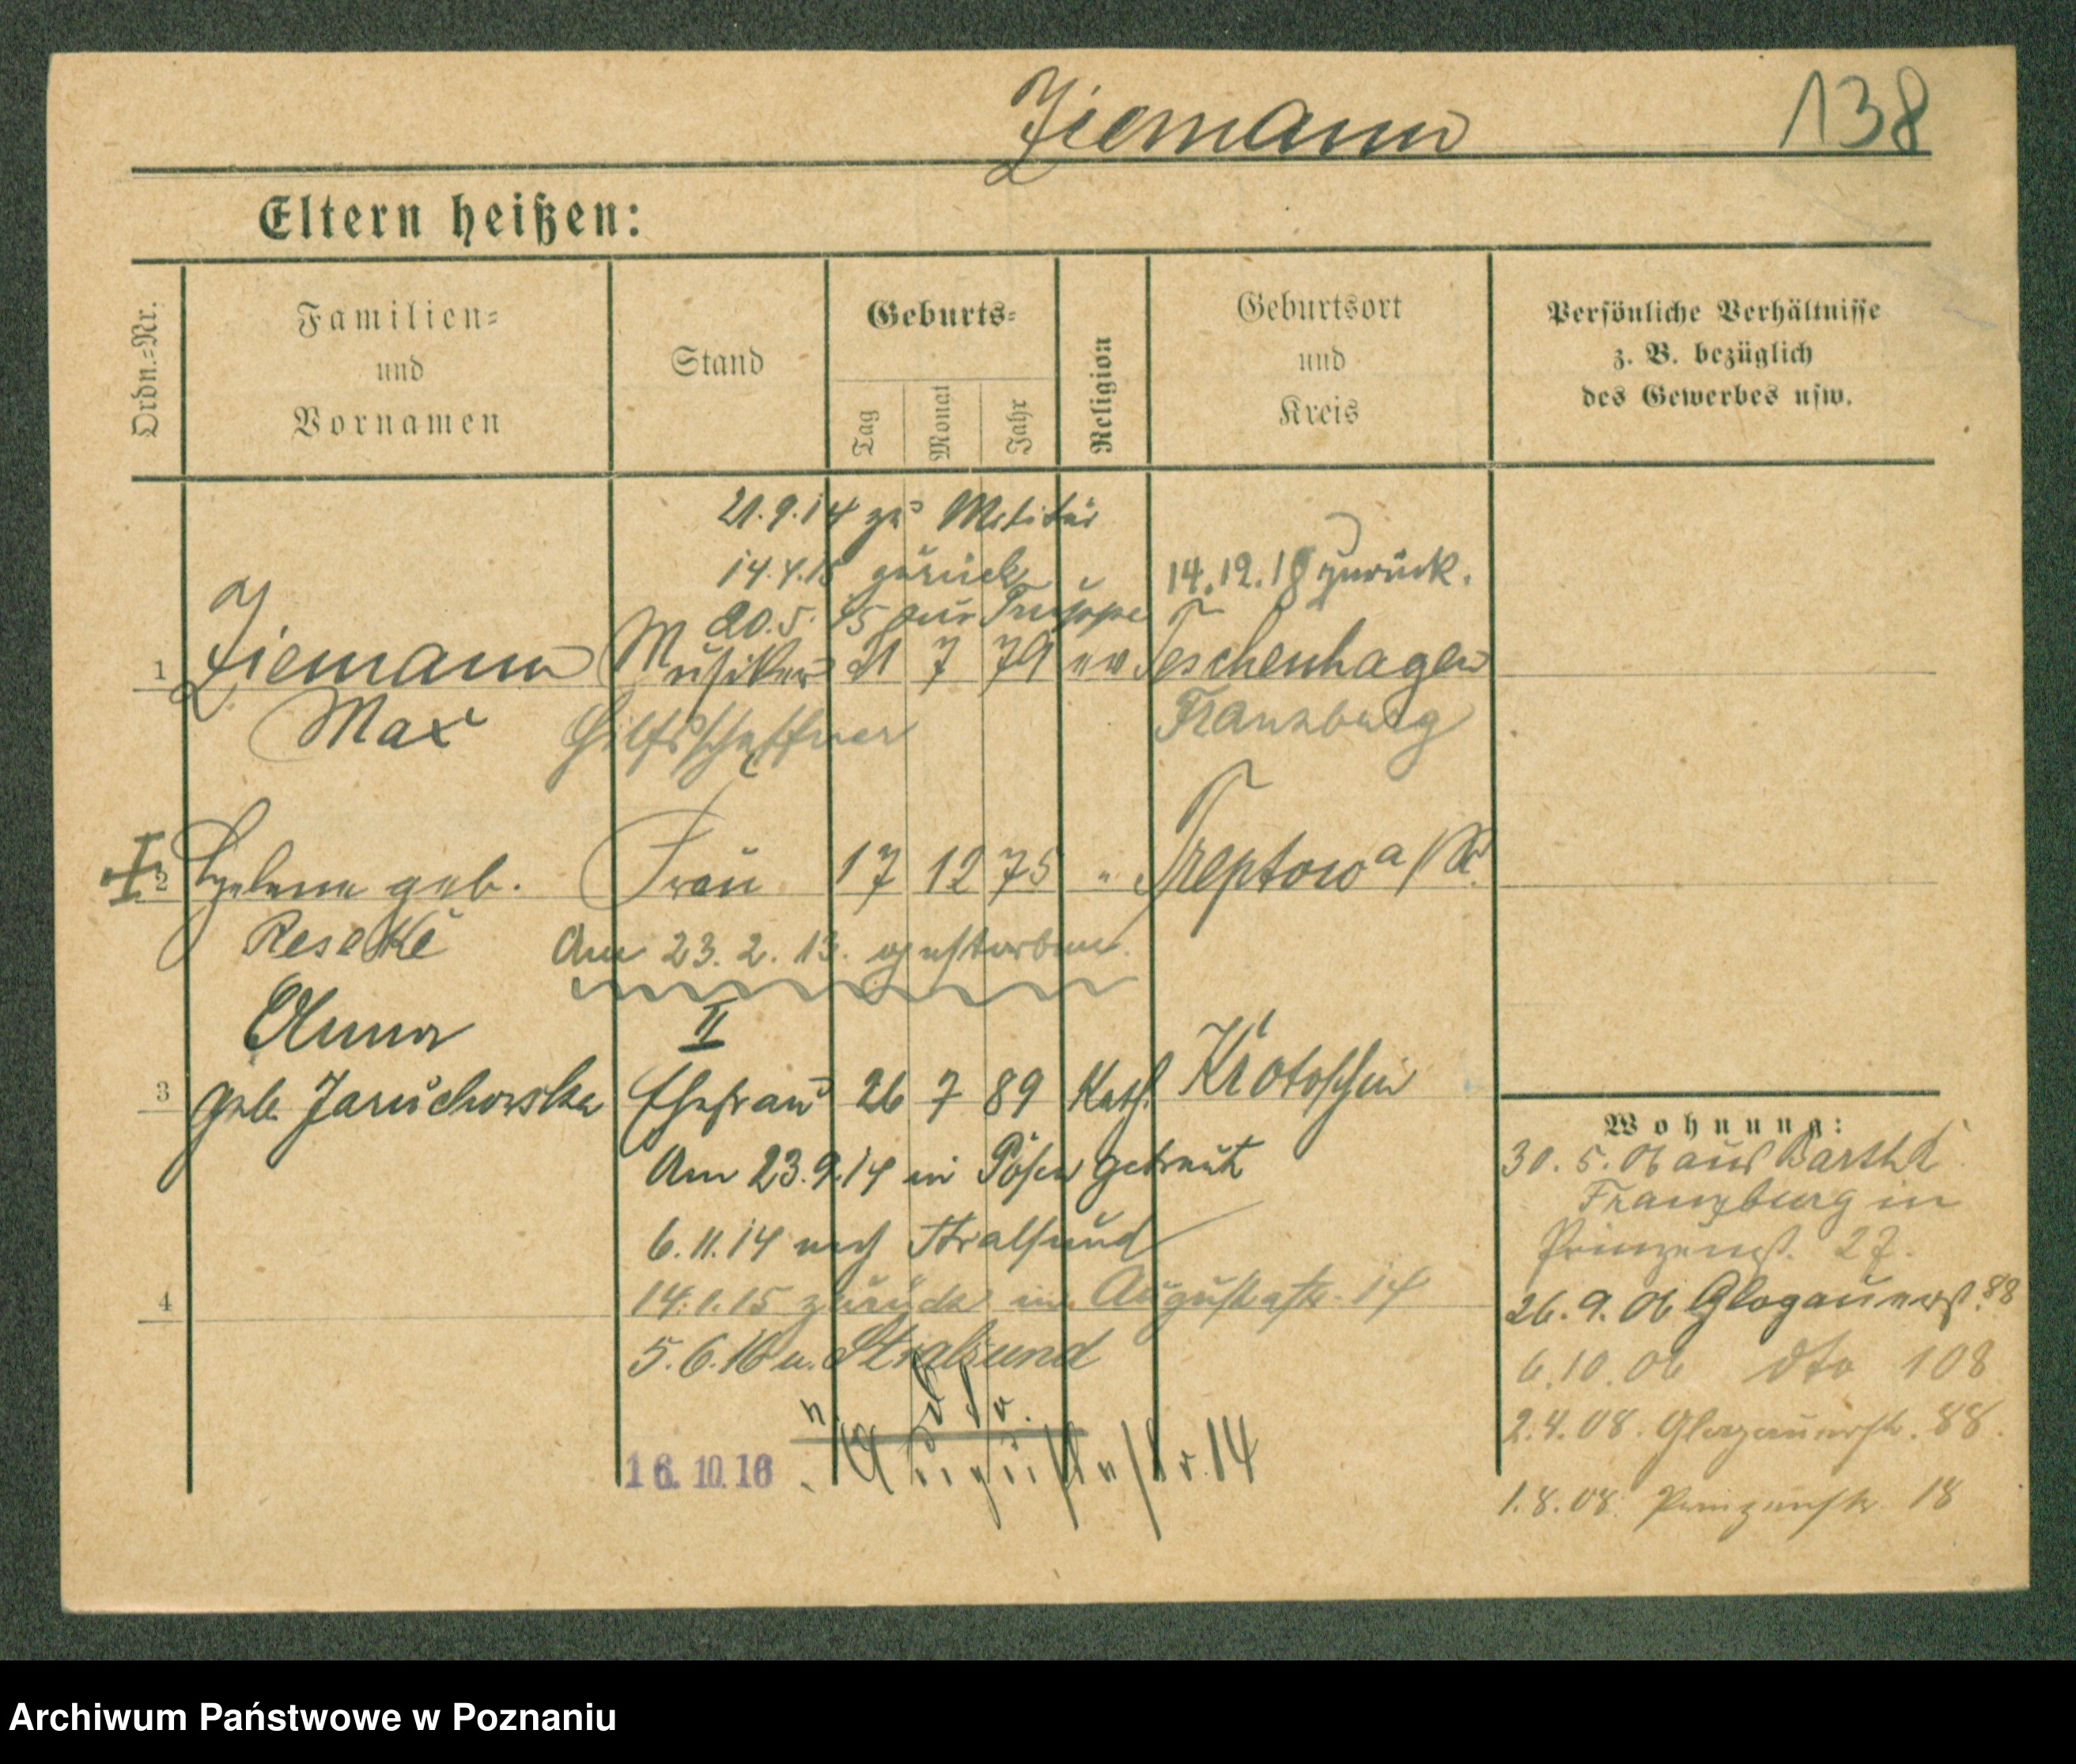 Ziemann 138
Eltern heißen:
Ordn.-Nr.
Familien-
und
Vornamen
Stand
Geburts-
Tag
Monat
Jahr
Religion
Geburtsort
und
Kreis
Persönliche Verhältnisse
z. B. bezüglich
des Gewerbes usw.
21.9.14 zu Militär
14.4.15 zurück
14.12.18 zurück.
20.5.15 zur Truppe
1 Ziemann Musiker 21 7 79 ev Teschenhagen
Max Hilfsschaffner Franzburg
2 Helene geb. Frau 17 12 75 " Treptow a/
Reseke Am 23.2.13. gestorben.
Anna II
3 geb. Jaruchowska Ehefrau 26 7 89 Kath. Krotoschin
Am 23.9.14 in Posen getraut
6.11.14 nach Stralsund
4 14.1.15 zurück in Augustastr. 14
5.6.16 n. Stralsund
n. dto.
16.10.16 Augustastr. 14
Wohnung:
30.5.06 aus Barth
Franzburg in
Prinzenst. 27.
26.9.06 Glogauerst. 88
6.10.06 dto 108
2.4.08. Glogauerstr. 88.
1.8.08. Prinzenstr 18
Archiwum Państwowe w Poznaniu